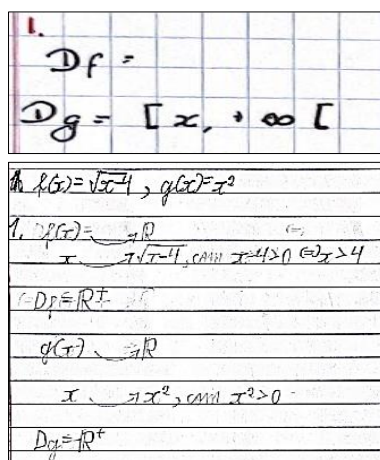 1.
Df =
Dg = [x, +∞ [
f(x)=√x-4, g(x)=x²
1. Df(x)= → ℝ
x → √x-4, com x-4>0 ⇔ x>4
Df=ℝ+
g(x) → ℝ
x → x², com x²>0
Dg=ℝ⁺